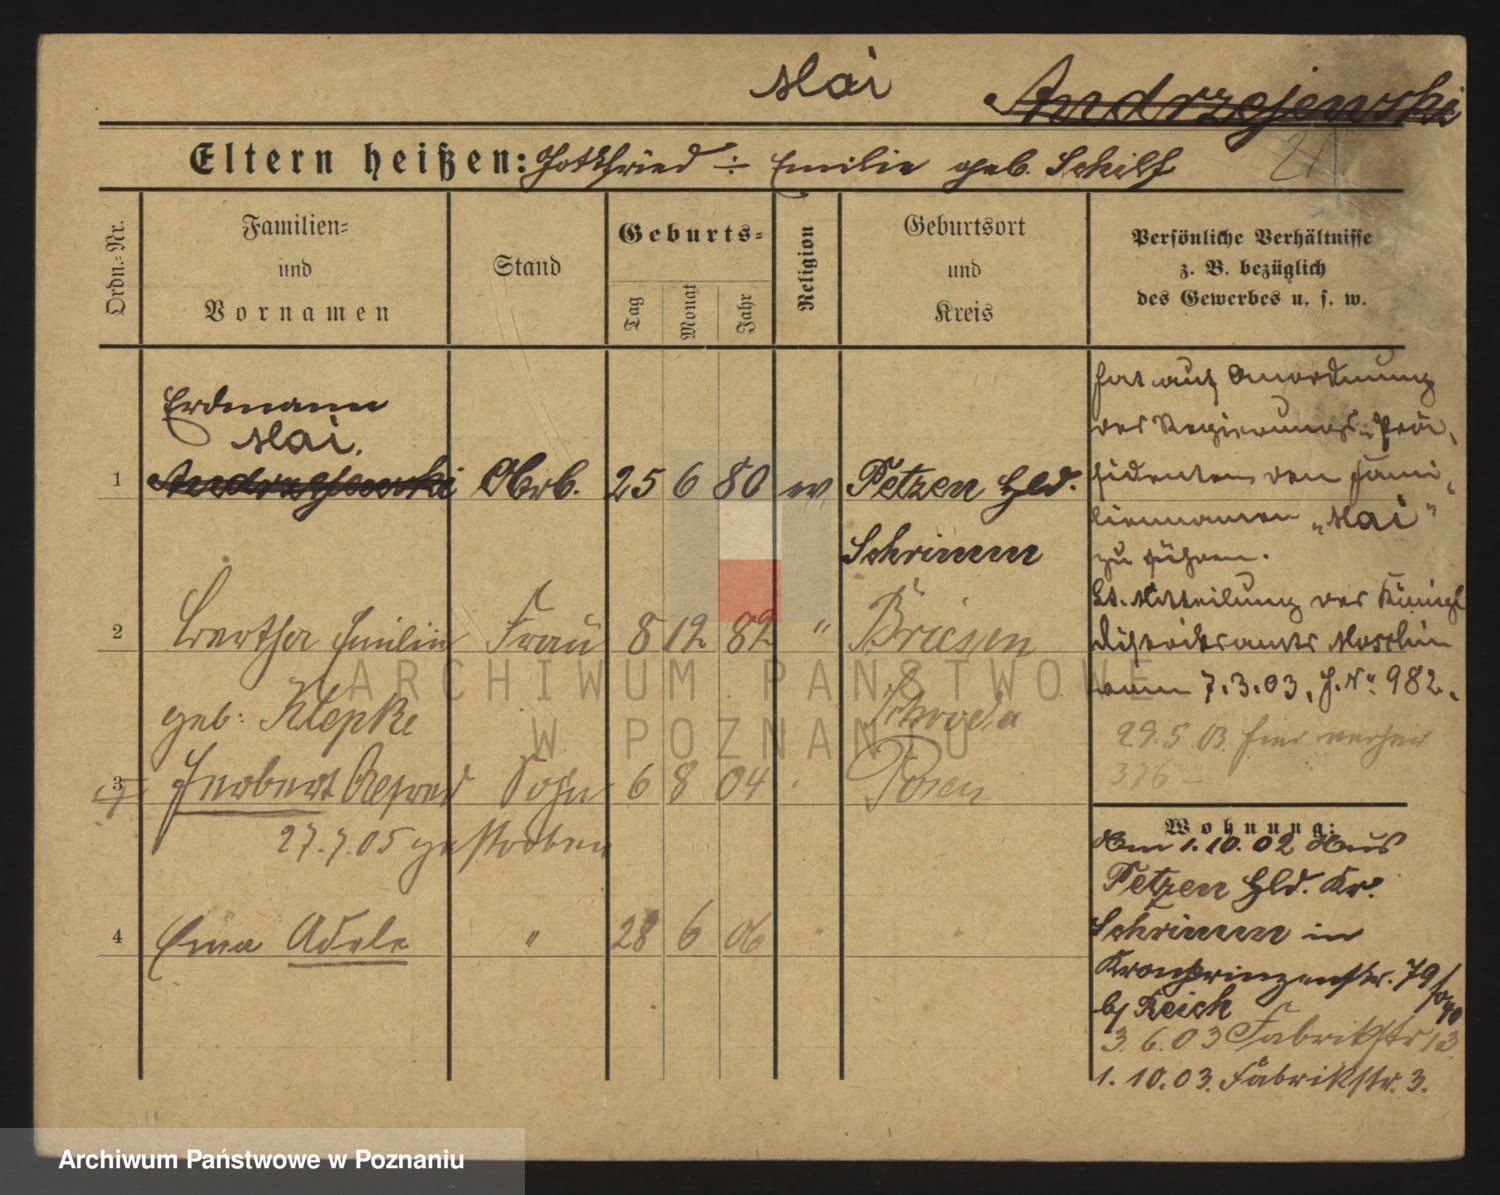 Mai Andrzejewski
21
Eltern heißen: Gottfried ÷ Emilie geb. Schilf
Ordn.-Nr.
Familien-
und
Vornamen
Stand
Geburts-
Tag
Monat
Jahr
Religion
Geburtsort
und
Kreis
Persönliche Verhältnisse
z. B. bezüglich
des Gewerbes u. s. w.
Erdmann
Mai.
1 Andrzejewski Arb. 25 6 80 Petzen Hld.
Schrimm
2 Bertha Emilie Frau 8 12 82 " Briesen
geb: Klepke Schroda
3 Herbert Alfred Sohn 6 8 04 Posen
27.7.05 gestorben
4 Erna Adele " 28 6 06
hat auf Anordnung
des Regierungs-Präsi-
sidenten den Fami-
liennamen „Mai"
zu führen.
Lt. Mitteilung des Königl
Distriktsamts Moschin
vom 7.3.03, J. No. 982.
29.5.03 hier verheir
376
Wohnung:
Am 1.10.02 Aus
Petzen Hld. Kr.
Schrimm in
Kronprinzenstr. 79
b/ Reich
3.6.03 Fabrikstr 13
1.10.03. Fabrikstr. 3.
ARCHIWUM PAŃSTWOWE
W POZNANIU
Archiwum Państwowe w Poznaniu